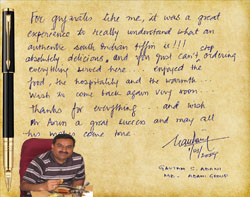 For gujratis like me, it was a great
experience to really understand what an
authentic south Indian tiffin is!!!
absolutely delicious. and you just can't stop ordering
everything served here!! enjoyed the
food, the hospitality and the warmth
wish to come back again very soon.
thanks for everything and wish
Mr Arun a great success and may all
his wishes come true
GAUTAM S. ADANI
MD. ADANI GROUP